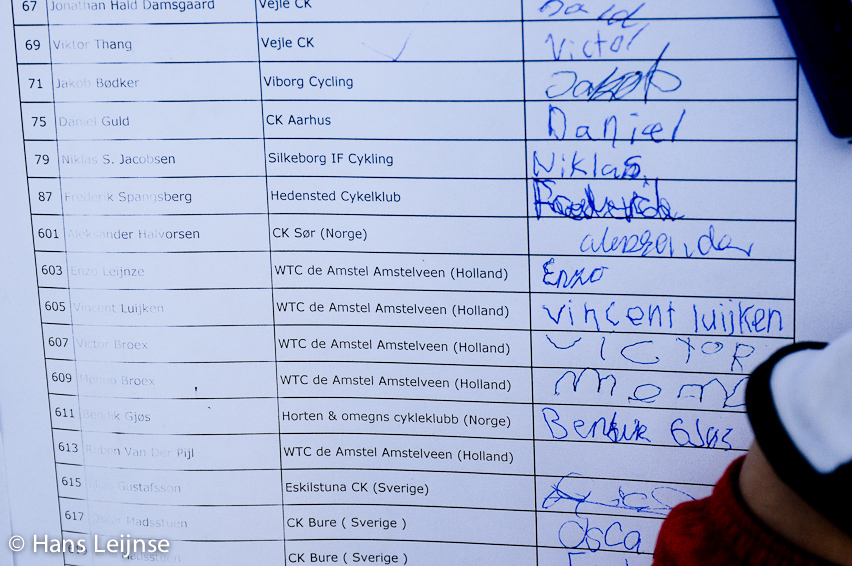 67 Jonathan Hald Damsgaard Vejle CK
69 Viktor Thang Vejle CK Victor
71 Jakob Bødker Viborg Cycling Jakob
75 Daniel Guld CK Aarhus Daniel
79 Niklas S. Jacobsen Silkeborg IF Cykling Niklas
87 Frederik Spangsberg Hedensted Cykelklub Frederik
601 Aleksander Halvorsen CK Sør (Norge)
603 Enzo Leijnze WTC de Amstel Amstelveen (Holland) Enzo
605 Vincent Luijken WTC de Amstel Amstelveen (Holland) Vincent luijken
607 Victor Broex WTC de Amstel Amstelveen (Holland) VICTOR
609 Broex WTC de Amstel Amstelveen (Holland)
611 Bendik Gjøs Horten & omegns cykleklubb (Norge) Bendik Gjøs
613 Ruben Van Der Pijl WTC de Amstel Amstelveen (Holland)
615 Gustafsson Eskilstuna CK (Sverige)
617 Oscar Madsstuen CK Bure ( Sverige ) Osca
CK Bure ( Sverige )
© Hans Leijnse